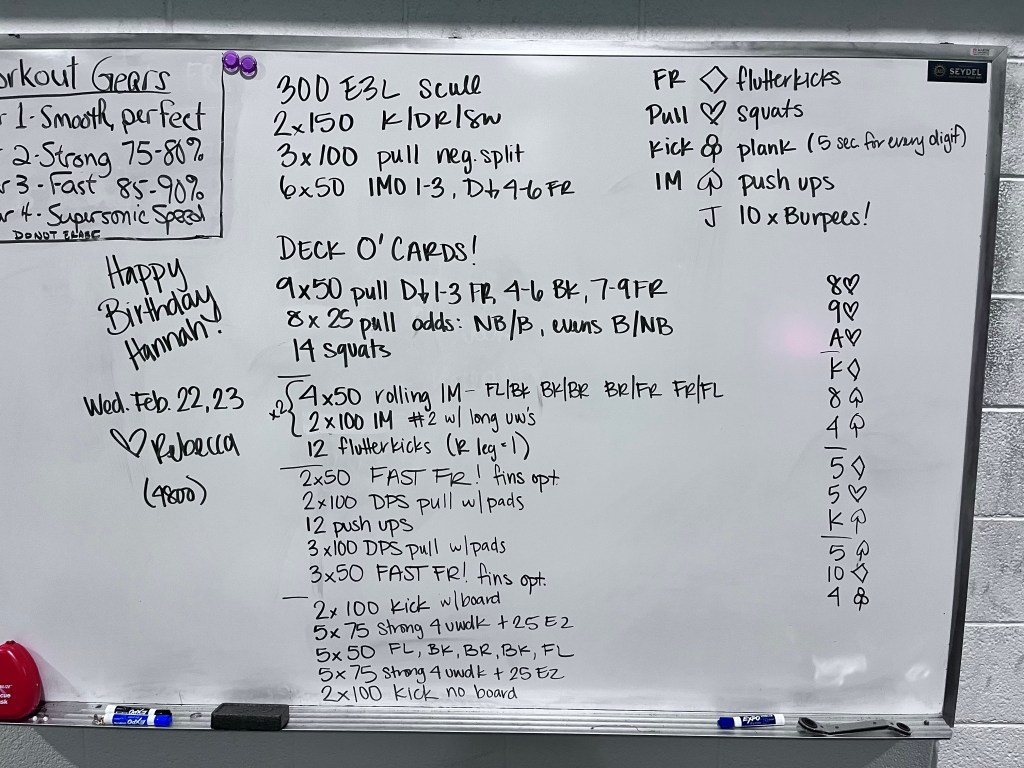 orkout Gears
r 1 - Smooth, perfect
r 2 - Strong 75-80%
r 3 - Fast 85-90%
ar 4 - Supersonic Speed
DO NOT ERASE
Happy
Birthday
Hannah!
Wed. Feb. 22, 23
♡ Rebecca
(4800)
300 E3L scull
2x150 K/DR/SW
3x100 pull neg. split
6x50 IMO 1-3, D↓ 4-6 FR
DECK O' CARDS!
9x50 pull D↓ 1-3 FR, 4-6 BK, 7-9 FR
8x25 pull odds: NB/B, evens B/NB
14 squats
x2 { 4x50 rolling IM - FL/BK BK/BR BR/FR FR/FL
2x100 IM #2 w/ long uw's
12 flutterkicks (R leg = 1)
2x50 FAST FR! fins opt.
2x100 DPS pull w/pads
12 push ups
3x100 DPS pull w/pads
3x50 FAST FR! fins opt.
2x100 Kick w/board
5x75 Strong 4 uwdk + 25 EZ
5x50 FL, BK, BR, BK, FL
5x75 Strong 4 uwdk + 25 EZ
2x100 Kick no board
FR ♢ flutterkicks
Pull ♡ squats
Kick ♧ plank (5 sec for every digit)
IM ♤ push ups
J 10 x Burpees!
8♡
9♡
A♡
K♢
8♤
4♤
5♢
5♡
K♤
5♤
10♢
4♧
SEYDEL
EXPO
EXPO
EXPO